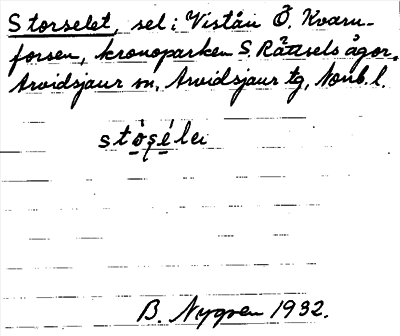 Storselet, sel i Vistån Ö. Kvarn-
forsen, kronoparken S. Rättsels ägor,
Arvidsjaur sn, Arvidsjaur tg, Norrb. l.
B. Nygren 1932.